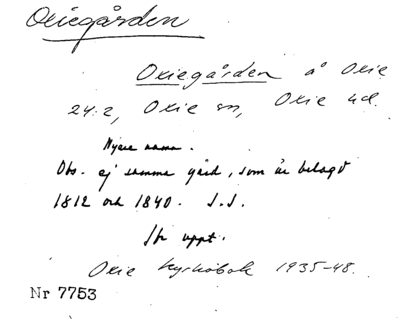 Oxiegården
Oxiegården å Oxie
24:2, Oxie sn, Oxie hd.
Nyare namn.
Obs. ej samma gård, som är belagd
1812 och 1840. S.S.
Str uppt.
Oxie kyrkobok 1935-48.
Nr 7753